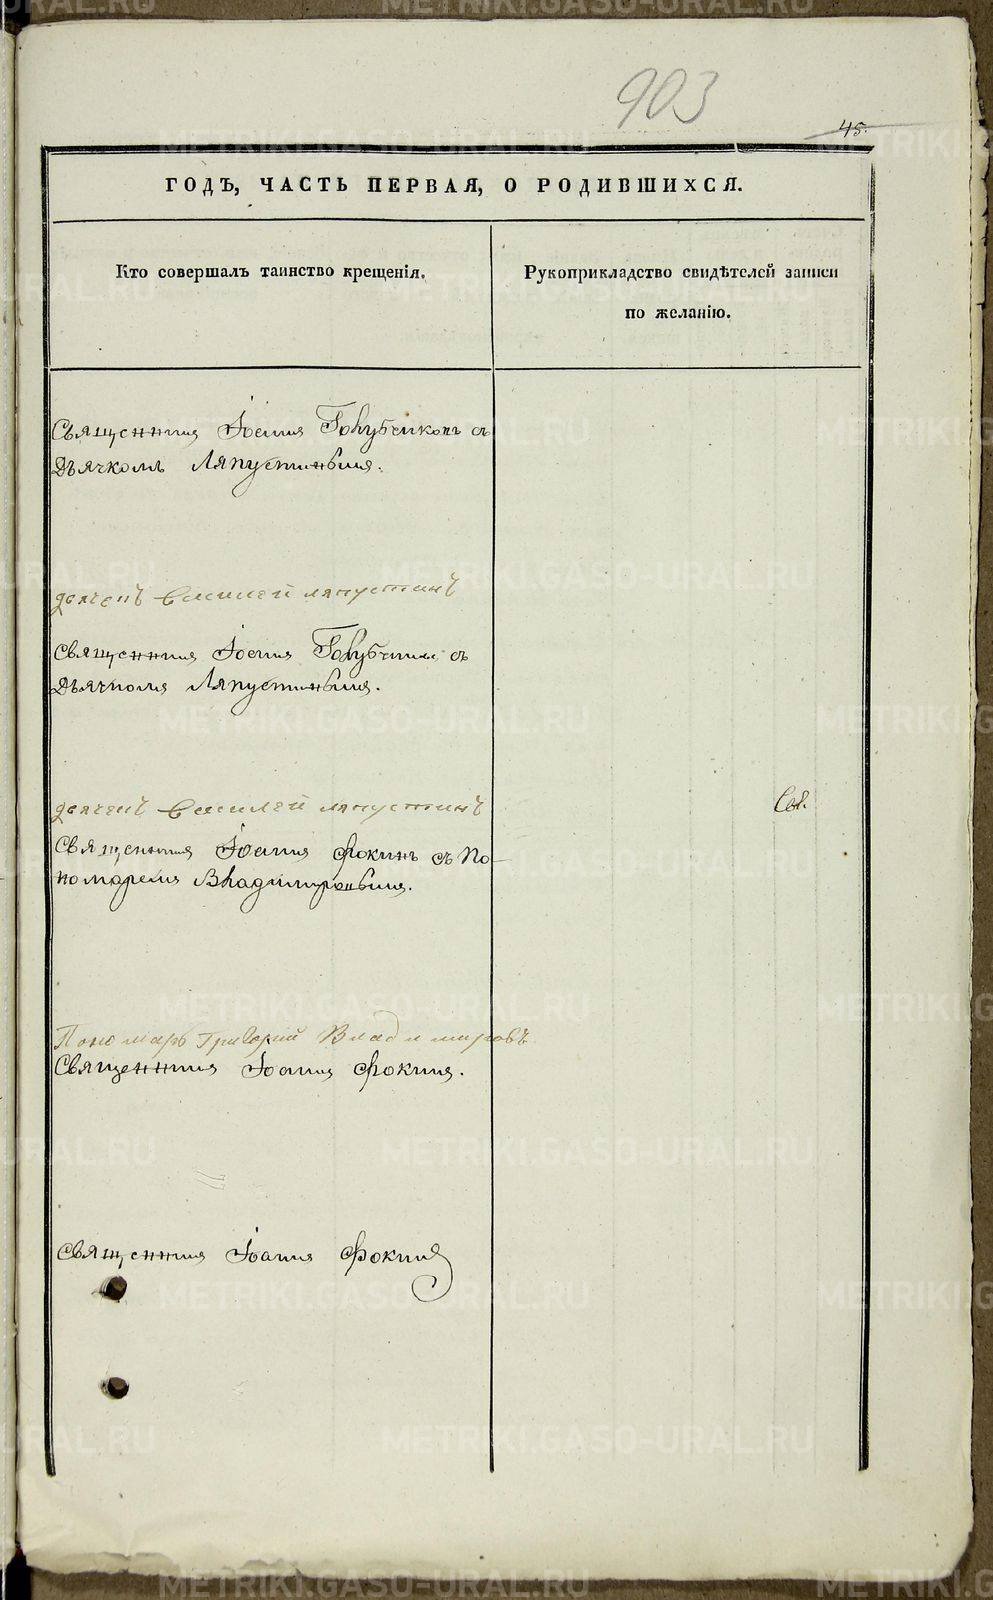 903
45.
ГОДЪ, ЧАСТЬ ПЕРВАЯ, О РОДИВШИХСЯ.
Кто совершалъ таинство крещенія.
Рукоприкладство свидѣтелей записи
по желанію.
Священникъ Іоаннъ Голубчиковъ съ
Дьячкомъ Ляпустинымъ.
дьячекъ Василей ляпустинъ
Священникъ Іоаннъ съ
Дьячкомъ Ляпустинымъ.
дьячекъ Василей ляпустинъ
Священникъ Іоаннъ Фокинъ съ По-
номаремъ Владимировымъ.
Пономарь Григорий Владимировъ
Священникъ Іоаннъ Фокинъ.
Священникъ Іоаннъ Фокинъ
METRIKI.GASO-URAL.RU